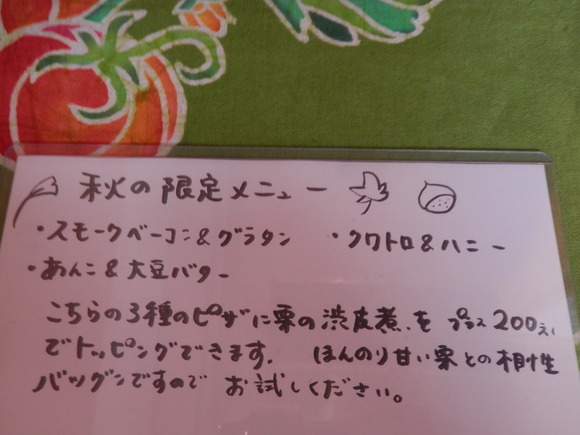 秋の限定メニュー
・スモークベーコン&グラタン ・クワトロ&ハニー
・あんこ&大豆バター
こちらの3種のピザに栗の渋皮煮を プラス200えん
でトッピングできます。 ほんのり甘い栗との相性
バツグンですので お試しください。